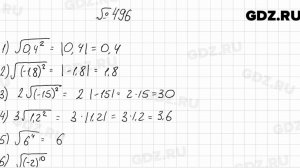 № 496
GDZ.RU
1) √0,4² = |0,4| = 0,4
2) √(-1.8)² = |-1.8| = 1.8
3) 2√(-15)² = 2|-15| = 2·15 = 30
4) 3√1,2² = 3·|1.2| = 3·1.2 = 3.6
5) √6⁴ = 6
6) √(-2)¹⁰